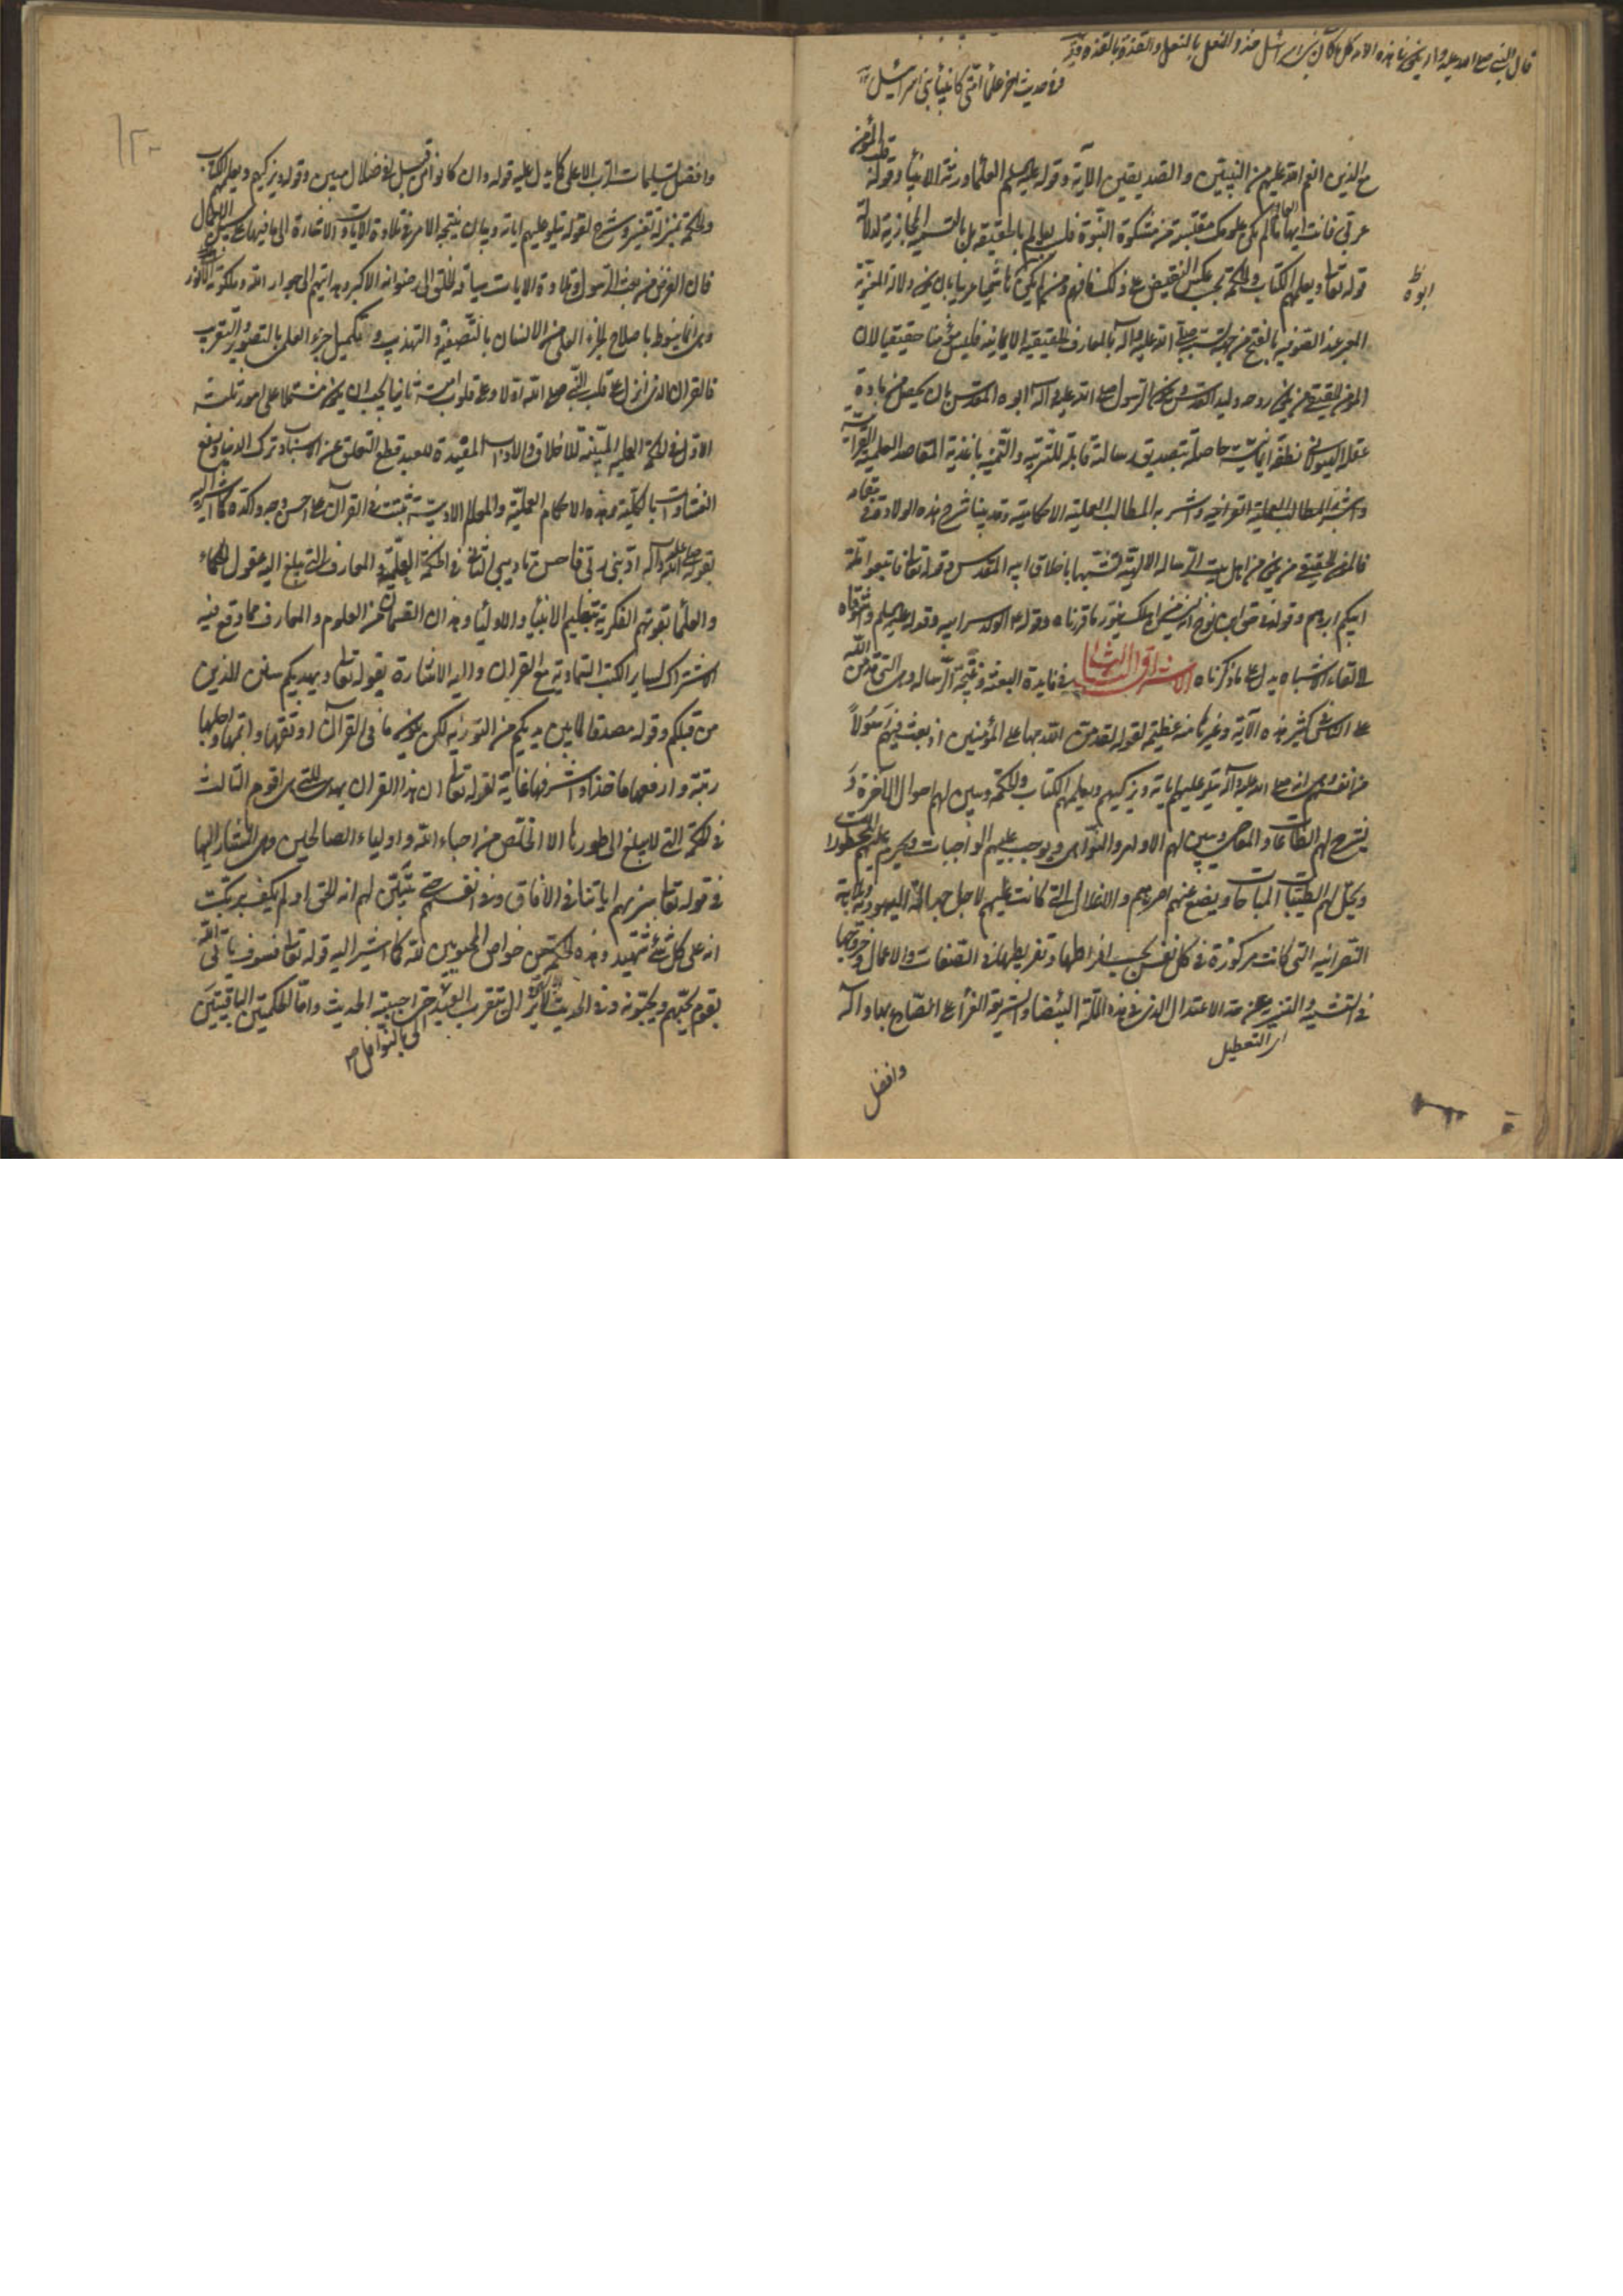 قال النبي صلى الله عليه واله يكون في هذه الامه كل ما كان في بني اسرائيل حذو النعل بالنعل والقذة بالقذة
وفي حديث اخر علماء امتي كانبياء بني اسرائيل
مع الذين انعم الله عليهم من النبيين والصديقين الآية وقوله عليه السلم العلماء ورثة الانبياء وقوله
قلب المؤمن
عرشي فانت ايها العالم ما لم يكن علومك مقتبسة من مشكوة النبوة فلست بعالم بالحقيقة بل بالتسمية المجازية لدلالة
قوله تعالى ويعلمهم الكتاب والحكمة بحسب عكس النقيض على ذلك فافهم
ابوه ظ
المؤمن الحقيقي من يكون روحه وليد القدس ويكون الرسول صلى الله عليه وآله ابوه المقدس بان يحصل من مادة
عقله الهيولاني نطفة ايمانية حاصلة بتصديق رسالته قابلة للتربية والتنمية باغذية المقاصد العلمية القرآنية
واشربة المطالب العملية
فالمؤمن الحقيقي من يكون من اهل بيت الرسالة الالهية متشبها باخلاق ابيه المقدس قوله تعالى فاتبعوا ملة
ابيكم ابراهيم وقوله في حق ابن نوح انه ليس من اهلك ينور ما قررناه وقوله ع الولد سر ابيه وقوله عليه السلم واشوقاه
الى لقاء الاشباه يدل على ما ذكرناه الاشراق الثامن في فايدة البعثة ونتيجة الرسالة وهي التي قد من الله
على الناس في كثير بهذه الآية وغيرها منة عظيمة لقوله لقد من الله بها على المؤمنين اذ بعث فيهم رسولا
من انفسهم وهي انه صلى الله عليه وآله يتلو عليهم اياته ويزكيهم ويعلمهم الكتاب والحكمة ويبين لهم احوال الآخرة و
يشرح لهم الطاعات والمعاصي ويبين لهم الاوامر والنواهي ويوجب عليهم الواجبات ويحرم عليهم المحظورات
ويحل لهم الطيبات المباحات ويضع عنهم اصرهم والاغلال التي كانت عليهم لاجل جهالة اليهودية
النصرانية التي كانت مركوزة في كل نفس بحسب افراطها وتفريطها في الصفات والاعمال وخروجها
في التشبيه والتنزيه عن حد الاعتدال الذي في هذه الملة البيضاء والشريعة الغراء على الصادع بها وآله
اى التعطيل
وافضل
١٢٠
وافضل تسليمات الرب الاعلى كما يدل عليه قوله وان كانوا من قبل لفي ضلال مبين وقوله ويزكيهم ويعلمهم الكتاب
والحكمة بمنزلة تفسير وشرح لقوله يتلو عليهم اياته وبيان نتيجة الامر في تلاوة الايات والاشارة الى ما فيها على سبيل الاجمال
فان الغرض من بعث الرسول وتلاوة الايات سياقة الخلق الى رضوانه الاكبر وهدايتهم الى جوار الله وملكوته الانور
وهي انما ينوط باصلاح الجزء العملي من الانسان بالتصفية والتهذيب وتكميل جزءه العلمي بالتصوير والتقريب
فالقرآن الذي انزل على قلب النبي صلى الله اولا وعلى قلوب امته ثانيا يجب ان يكون مشتملا على امور ثلثة
الاول في الحكمة العملية المبينة للاخلاق والآداب المفيدة للعبد قطع التعلق عن الاسباب وترك الدنيا ورفع
الغشاوات بالكلية وهذه الاحكام العملية والمعالم الادبية ثبتت في القرآن على احسن وجه واكده كما اشير اليه
بقوله صلى الله عليه وآله ادبني ربي فاحسن تاديبي الثاني في الحكمة العلمية والمعارف التي يبلغ اليه عقول الحكماء
والعلماء بقوتهم الفكرية بتعليم الانبياء والاولياء وهذان القسمان من العلوم والمعارف مما وقع فيه
الاشتراك لساير الكتب السماوية مع القرآن واليه الاشارة بقوله تعالى ويهديكم سنن الذين
من قبلكم وقوله مصدقا لما بين يديكم من التورية لكن يكون ما في القرآن اوثقها واتمها واجلها
رتبة وارفعها ماخذا واشرفها غاية لقوله تعالى ان هذا القرآن يهدي للتي هي اقوم الثالث
في الحكمة التي لا يبلغ الى طورها الا الخلص من احباء الله واولياءه الصالحين وهي المشار اليها
في قوله تعالى سنريهم اياتنا في الآفاق وفي انفسهم حتى يتبين لهم انه الحق اولم يكف بربك
انه على كل شئ شهيد وهذه الحكمة من خواص المحبوبين لله كما اشير اليه قوله تعالى فسوف ياتي الله
بقوم يحبهم ويحبونه وفي الحديث لا يزال يتقرب العبد حتى احببته الحديث واما الحكمتين الباقيتين
الى بالنوافل صح